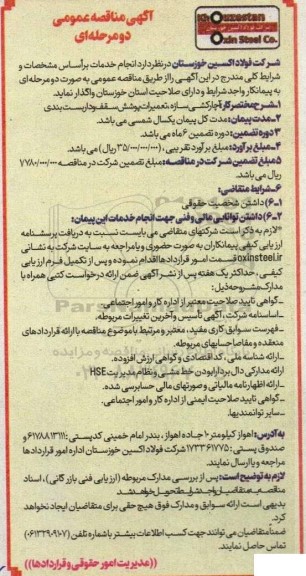 آگهی مناقصه عمومی
دو مرحله ای
Khouzestan
Oxin Steel Co.
شرکت فولاد اکسین خوزستان در نظر دارد انجام خدمات بر اساس مشخصات و
شرایط کلی مندرج در این آگهی را از طریق مناقصه عمومی به صورت دو مرحله ای
به پیمانکار واجد شرایط و دارای صلاحیت استان خوزستان واگذار نماید.
۱_شرح مختصر کار: آجارکشی سازه، تعمیرات پوشش سقف و داربست بندی
۲_مدت پیمان: مدت کل پیمان یکسال شمسی می باشد.
۳ دوره تضمین: دوره تضمین ۶ ماه می باشد.
۴_مبلغ برآورد: برآورد تقریبی، (۳۵/۰۰۰/۰۰۰/۰۰۰ ریال) می باشد.
۵ مبلغ تضمین شرکت در مناقصه: مبلغ تضمین شرکت در مناقصه ۷۷۸۰/۰۰۰/۰۰۰
ریال می باشد.
۶_شرایط متقاضی:
۶_۱) داشتن شخصیت حقوقی
۶_۲) داشتن توانایی مالی و فنی جهت انجام خدمات این پیمان:
*لازم به ذکر است شرکتهای متقاضی می بایست نسبت به دریافت پرسشنامه
ارزیابی کیفی پیمانکاران به صورت حضوری و یا مراجعه به سایت شرکت به نشانی
oxinsteel.ir قسمت امور قراردادها اقدام نموده و پس از تکمیل فرم ارزیابی
کیفی، حداکثر یک هفته پس از نشر آگهی ضمن ارائه درخواست کتبی همراه با
مدارک مشروحه ذیل:
_گواهی تایید صلاحیت معتبر از اداره کار و امور اجتماعی.
_اساسنامه شرکت، آگهی تأسیس و آخرین تغییرات مربوطه.
_فهرست سوابق کاری مفید، معتبر و مرتبط با موضوع مناقصه با ارائه قراردادهای
منعقده و مفاصاحسابهای مربوطه.
_ارائه شناسه ملی، کد اقتصادی و گواهی ارزش افزوده.
ارائه مدارکی دال بر دارا بودن خط مشی و نظام مدیریت HSE
_ارائه اظهارنامه مالیاتی و صورتهای مالی حسابرسی شده.
_گواهی تایید صلاحیت ایمنی از اداره کار و امور اجتماعی.
_سایر توانمندیها.
به آدرس: اهواز کیلومتر ۱۰ جاده اهواز، بندر امام خمینی کدپستی: ۶۱۷۸۸۱۳۱۱۱ و
صندوق پستی: ۱۷۳۳۶۱۷۷۵ شرکت فولاد اکسین خوزستان اداره امور قراردادها
مراجعه و یا ارسال نمایند.
لازم به توضیح است: پس از بررسی مدارک مربوطه (ارزیابی فنی بازرگانی)، اسناد
مناقصه به متقاضیان واجد شرایط تحویل خواهد شد
بدیهی است ارائه سوابق و مدارک فوق هیچ حقی برای متقاضیان ایجاد نخواهد
کرد.
ضمناً متقاضیان می توانند جهت کسب اطلاعات بیشتر با شماره تلفن (۰۶۱۳۲۹۰۹۱۰۷)
تماس حاصل نمایند.
((مدیریت امور حقوقی و قراردادها))